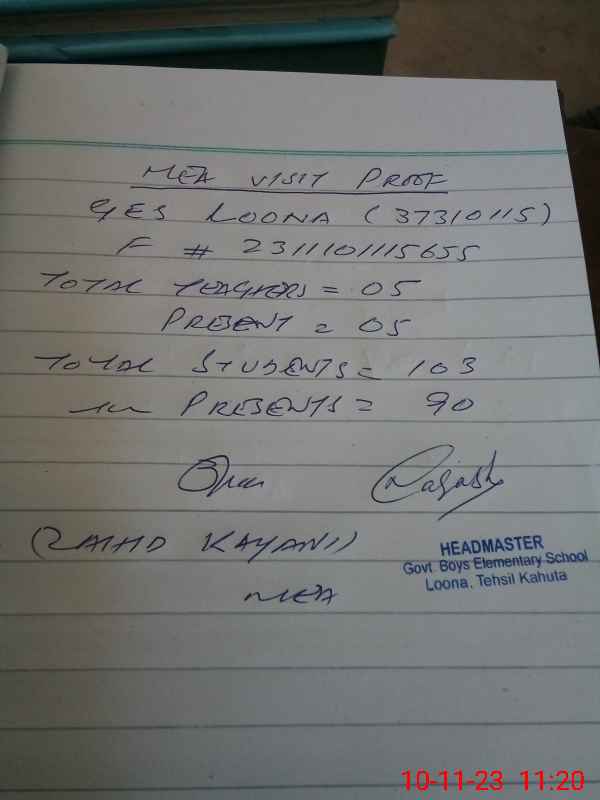 MEA VISIT PROOF
GES LOONA (37310115)
F # 2311101115655
TOTAL TEACHERS = 05
PRESENT = 05
TOTAL STUDENTS = 103
PRESENTS = 90
KAYANI)
MEA
HEADMASTER
Govt. Boys Elementary School
Loona, Tehsil Kahuta
10-11-23 11:20